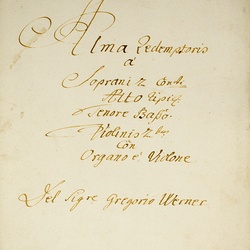 Alma Redemptoris
à
Soprani 2 Conc:
Alto Ripie:
Tenore Basso.
Violinis 2bus
Con
Organo è Violone
Del Sigre Gregorio Werner